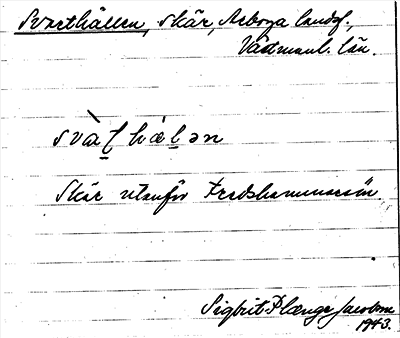 Svarthällen, skär, Arboga landsf.,
Västmanl. län.
svàʈhælən
Skär utanför Fredshammarsön.
Sigbrit Plænge Jacobson
1943.